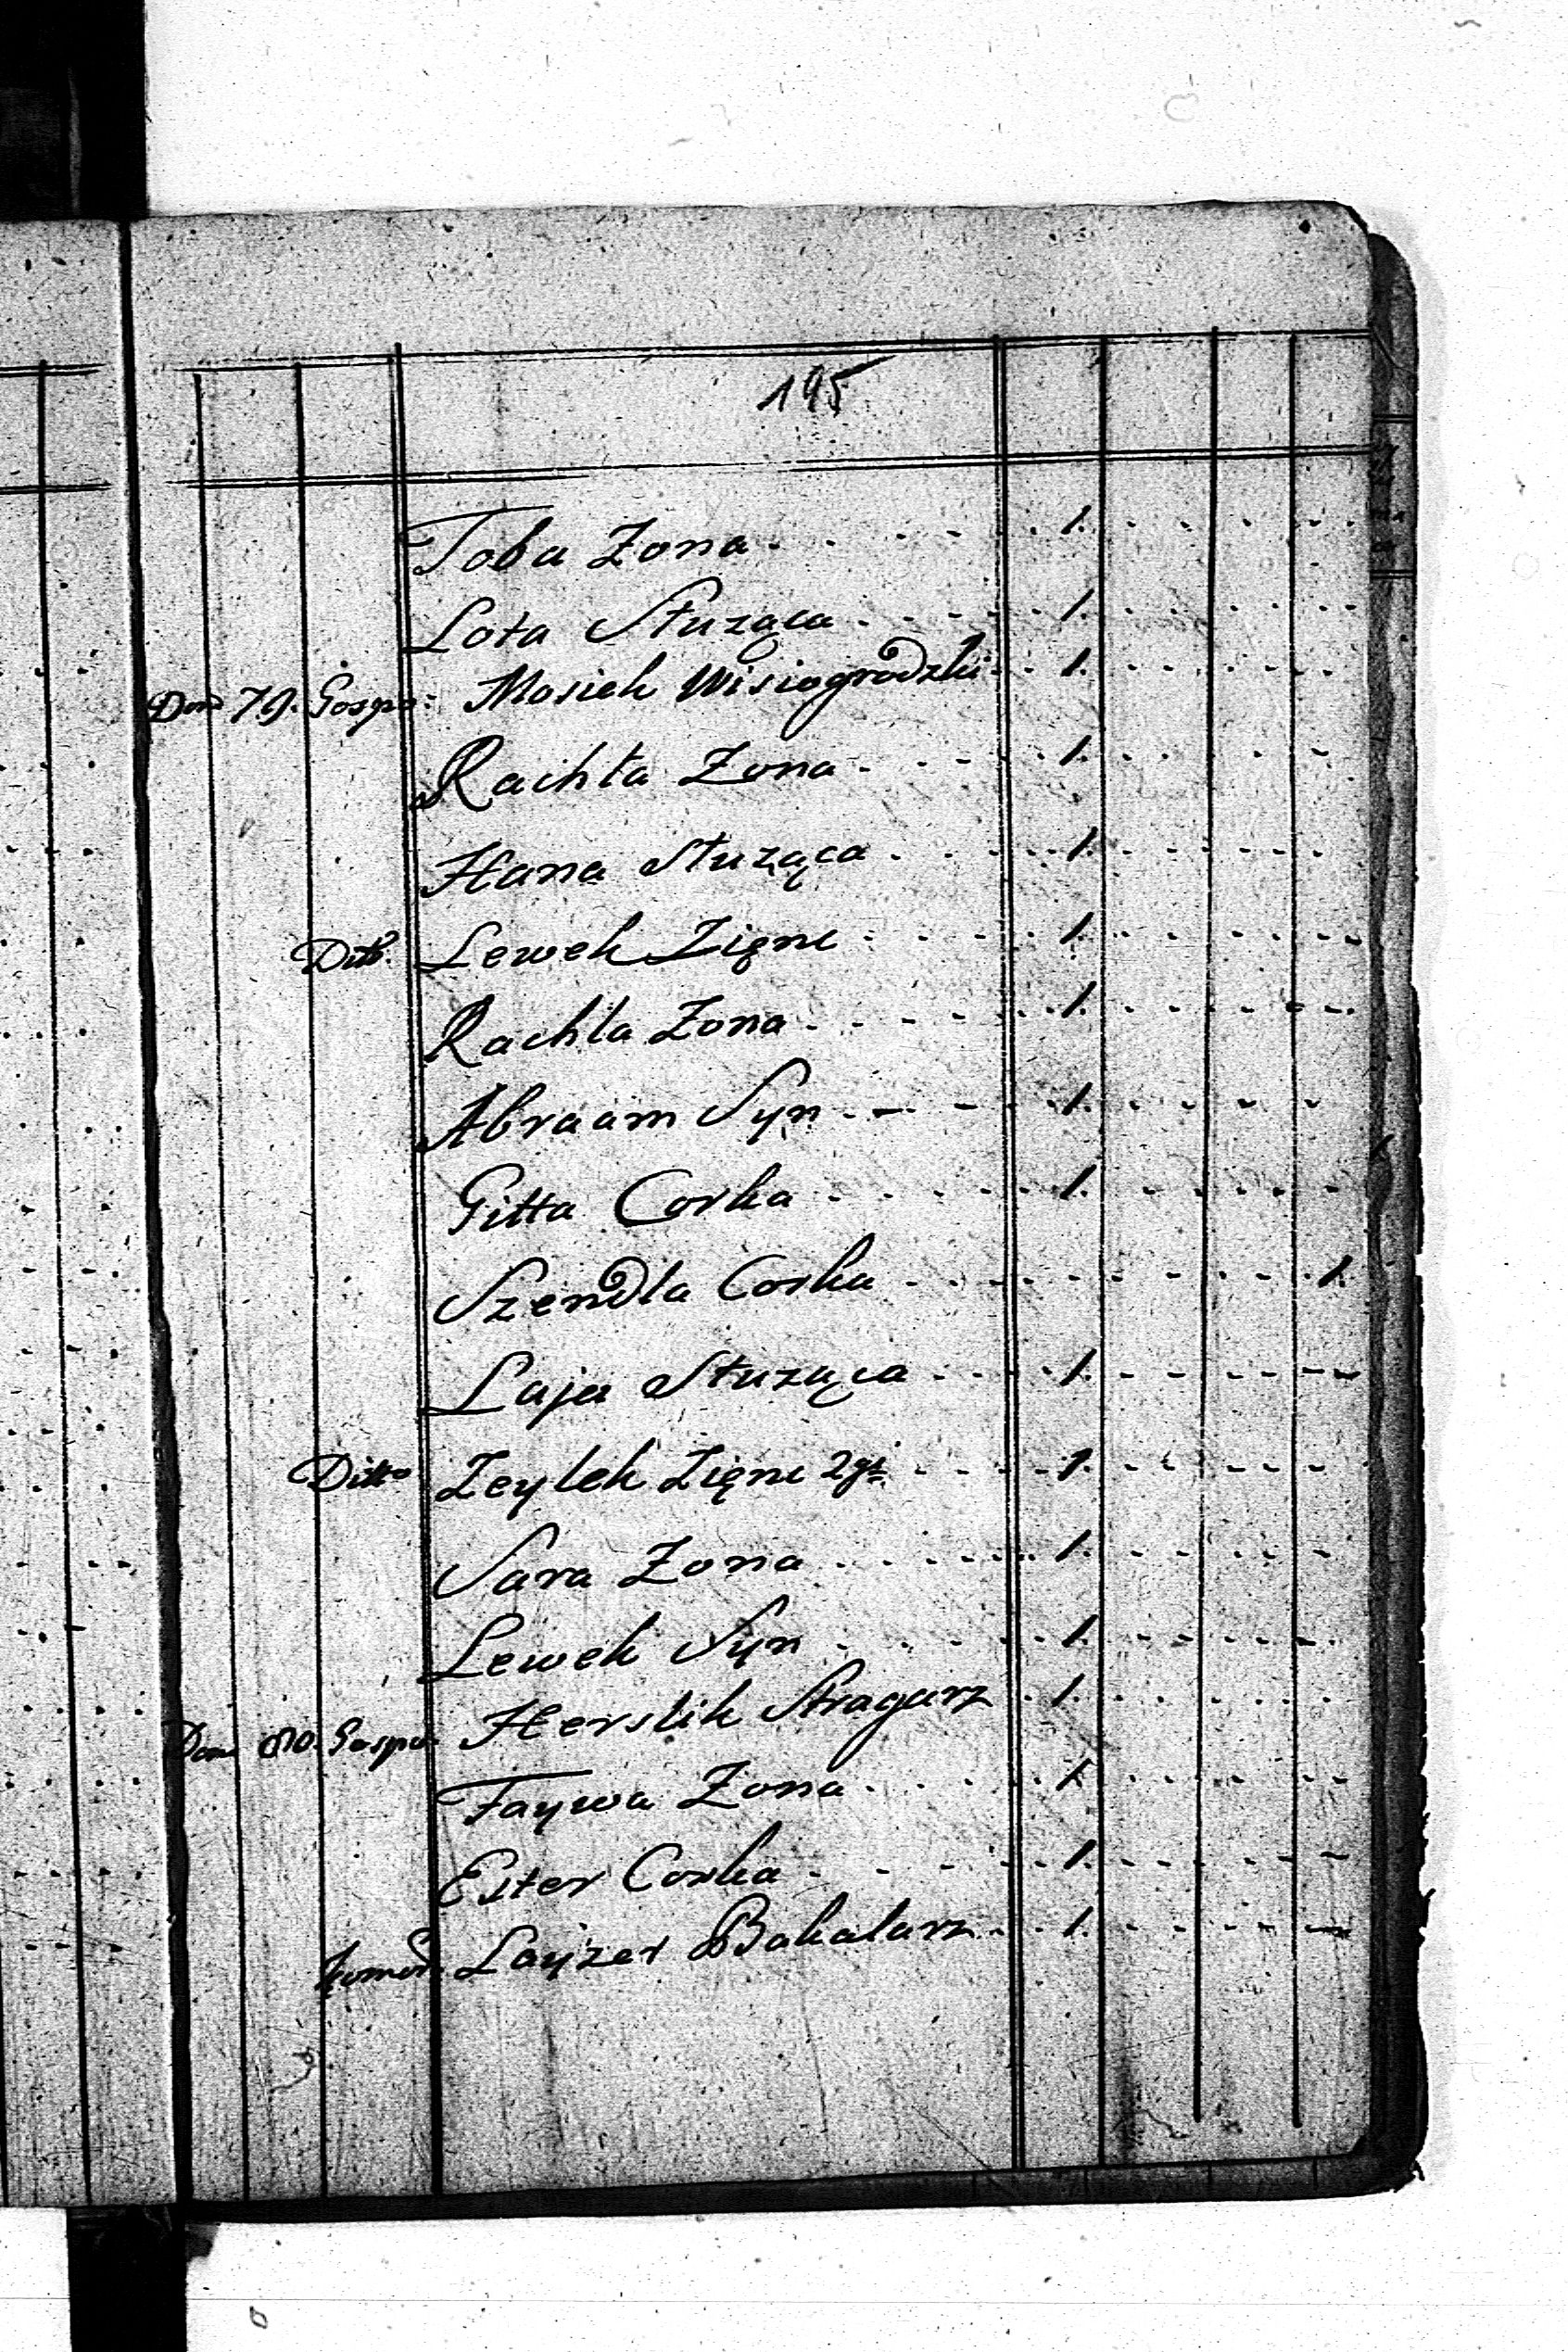 195
Toba Zona 1.
Lota Służąca 1.
Dom 79. Gospo: Mosiek Wisiogrodzki 1.
Rachla Zona 1.
Hana Służąca 1.
Ditto. Lewek Zięnc 1.
Rachla Zona 1.
Abraam Syn 1.
Gitta Corka 1.
Szendla Corka 1.
Laja Służąca 1.
Ditto Zeylek Zięnc 2gi 1.
Sara Zona 1.
Lewek Syn 1.
Dom 80. Gospo. Herslik Stragarz 1.
Faywa Zona 1
Ester Corka 1.
Komor Layzer Bakalarz 1.